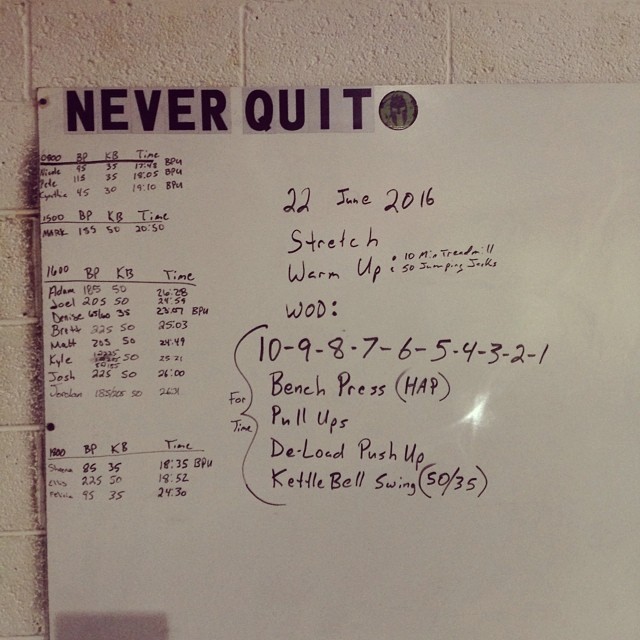 NEVER QUIT
0900 BP KB Time
Nicole 95 35 17:42 BPU
Pete 115 35 18:05 BPU
Cynthia 45 30 19:10 BPU
1500 BP KB Time
MARK 155 50 20:50
1600 BP KB Time
Adam 185 50 26:28
Joel 205 50 24:59
Denise 65/60 35 23:57 BPU
Brett 225 50 25:03
Matt 205 50 24:49
Kyle 50 25:21
Josh 225 50 26:00
Jordan 185/205 50 26:31
1800 BP KB Time
85 35 18:35 BPU
225 50 18:52
95 35 24:30
22 June 2016
Stretch
Warm Up : • 10 Min Treadmill
• 50 Jumping Jacks
WOD:
10-9-8-7-6-5-4-3-2-1
For Time
Bench Press (HAP)
Pull Ups
De-Load Push Up
Kettle Bell Swing (50/35)